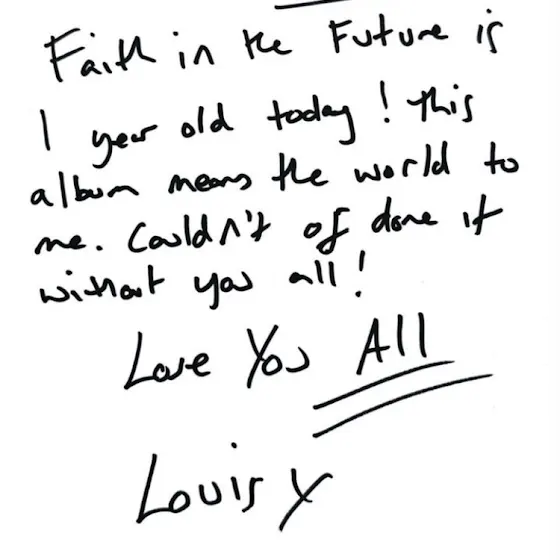 Faith in the Future is
1 year old today! This
album means the world to
me. Couldn't of done it
without you all!
Love You All
Louis x